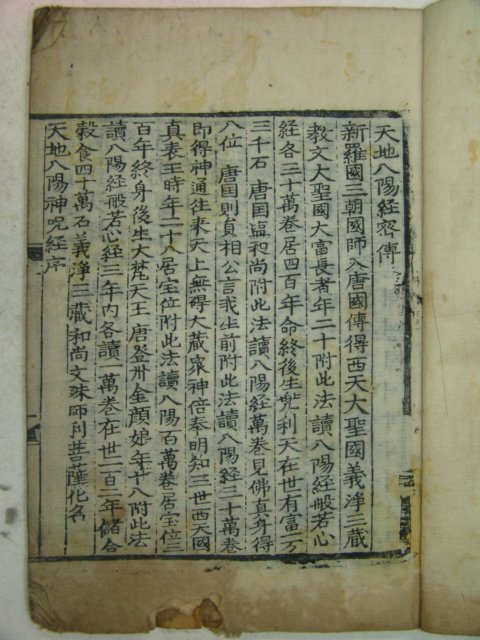 天地八陽經密傳
新羅國三朝國師入唐國傳得西天大聖國義淨三藏
教文大聖國大富長者年二十附此法讀八陽經般若心
經各三十萬卷居四百年命終後生兜利天在世有富一万
三千石 唐国 和尚附此法讀八陽經萬卷見佛真身得
八位 唐国則貟相公言我生前附此法讀八陽經三十萬卷
即得神通往來天上無碍大藏家神倍奉明知三世西天國
真表王時年二十八居宝位附此法讀八陽百萬卷居宝位三
百年終身後生大梵天王唐登州金顔娘年十八附此法
讀八陽經般若心經三年內各讀一萬卷在世二百二年儲合
穀食四十萬石義淨三藏和尚文殊師利菩薩化名
天地八陽神呪經序